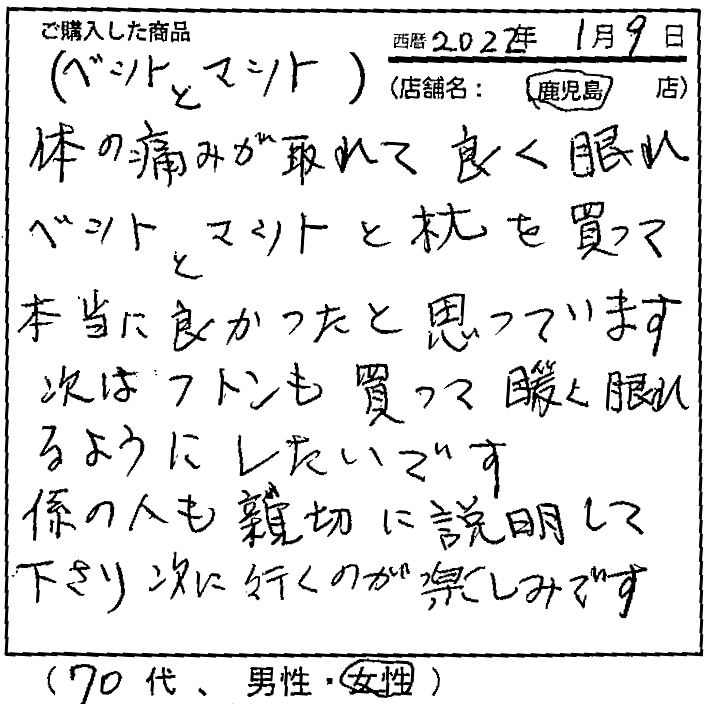 ご購入した商品
西暦2022年 1月9日
(ベントとマント)
(店舗名： 鹿児島 店)
体の痛みが取れて良く眠れ
ベントとマントと枕を買って
本当に良かったと思っています
次はフトンも買って暖く眠れ
るようにしたいです
係の人も親切に説明して
下さり次に行くのが楽しみです
(70代、男性・女性)